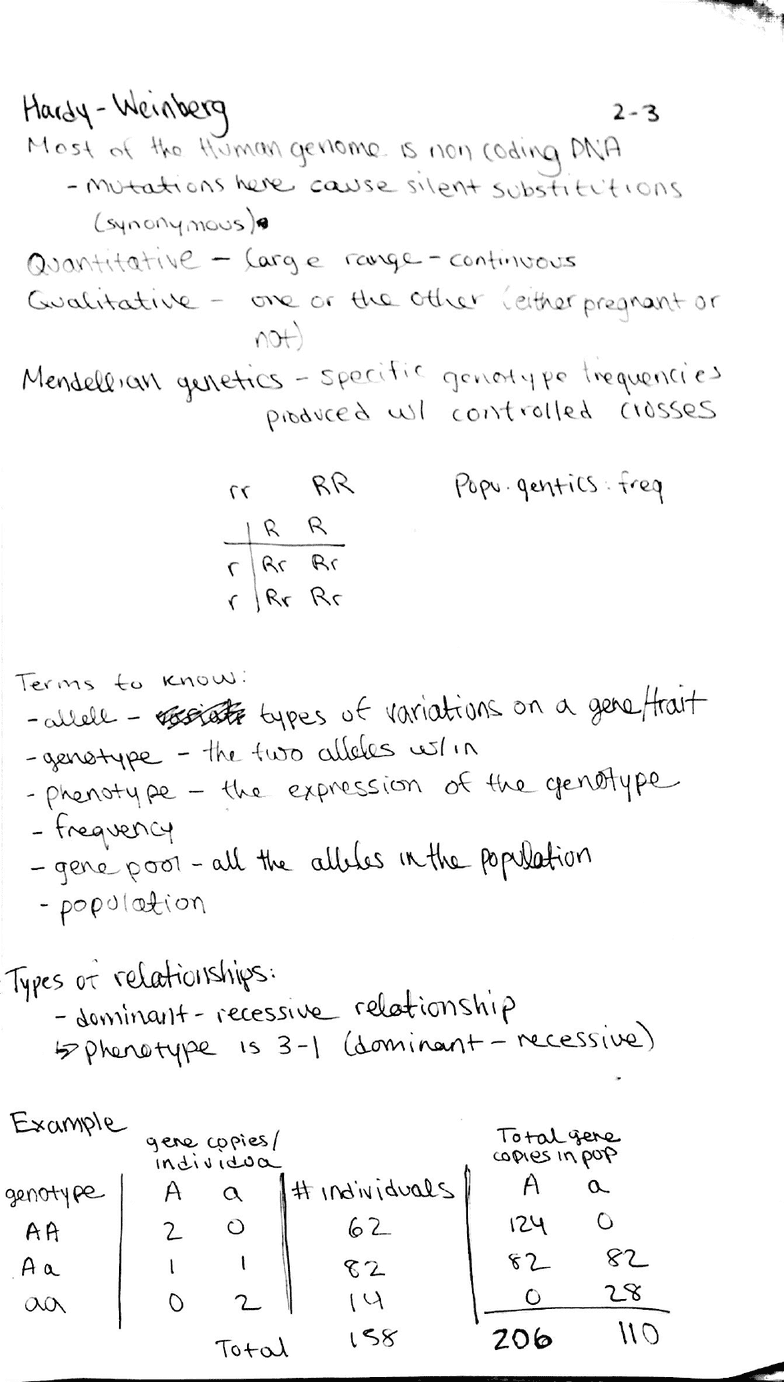 Hardy-Weinberg 2-3
Most of the Human genome is non coding DNA
- Mutations here cause silent substitutions
(synonymous)
Quantitative - large range - continuous
Qualitative - one or the other (either pregnant or
not)
Mendellian genetics - specific genotype frequencies
produced w/ controlled crosses
rr RR Popu. gentics: freq
R R
r Rr Rr
r Rr Rr
Terms to know:
- allell - types of variations on a gene/trait
- genotype - the two alleles w/in
- phenotype - the expression of the genotype
- frequency
- gene pool - all the alleles in the population
- population
Types of relationships:
- dominant - recessive relationship
↳ phenotype is 3-1 (dominant - recessive)
Example
gene copies/ Total gene
individua copies in pop
genotype A a # individuals A a
AA 2 0 62 124 0
Aa 1 1 82 82 82
aa 0 2 14 0 28
Total 158 206 110